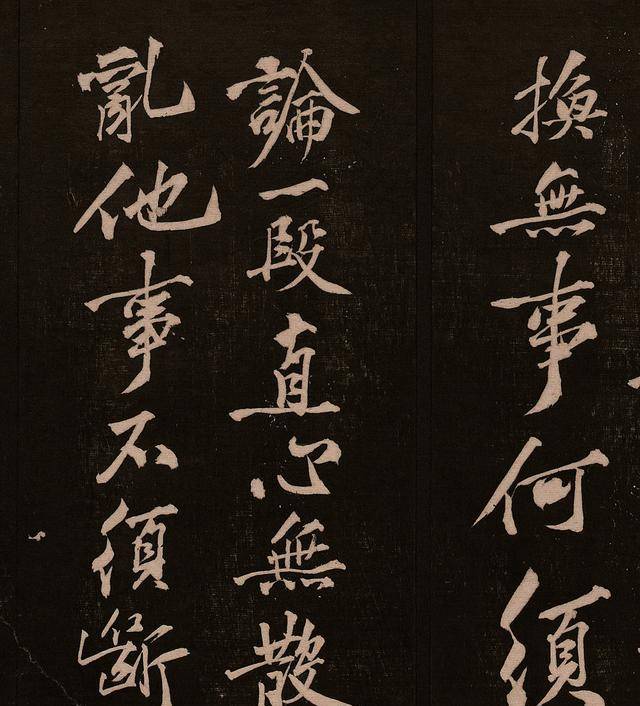 換無事何須
論一段直心無散
亂他事不須斷